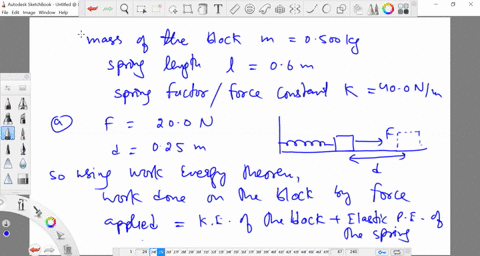 Autodesk SketchBook - Untitled @ 10
File Edit Image Window My Account Help
mass of the block m = 0.500 kg
spring length l = 0.6 m
spring factor / force constant K = 40.0 N/m
(a) F = 20.0 N
d = 0.25 m
F
d
so using work energy theorem,
work done on the block by force
applied = K.E. of the block + Elastic P.E. of
the spring